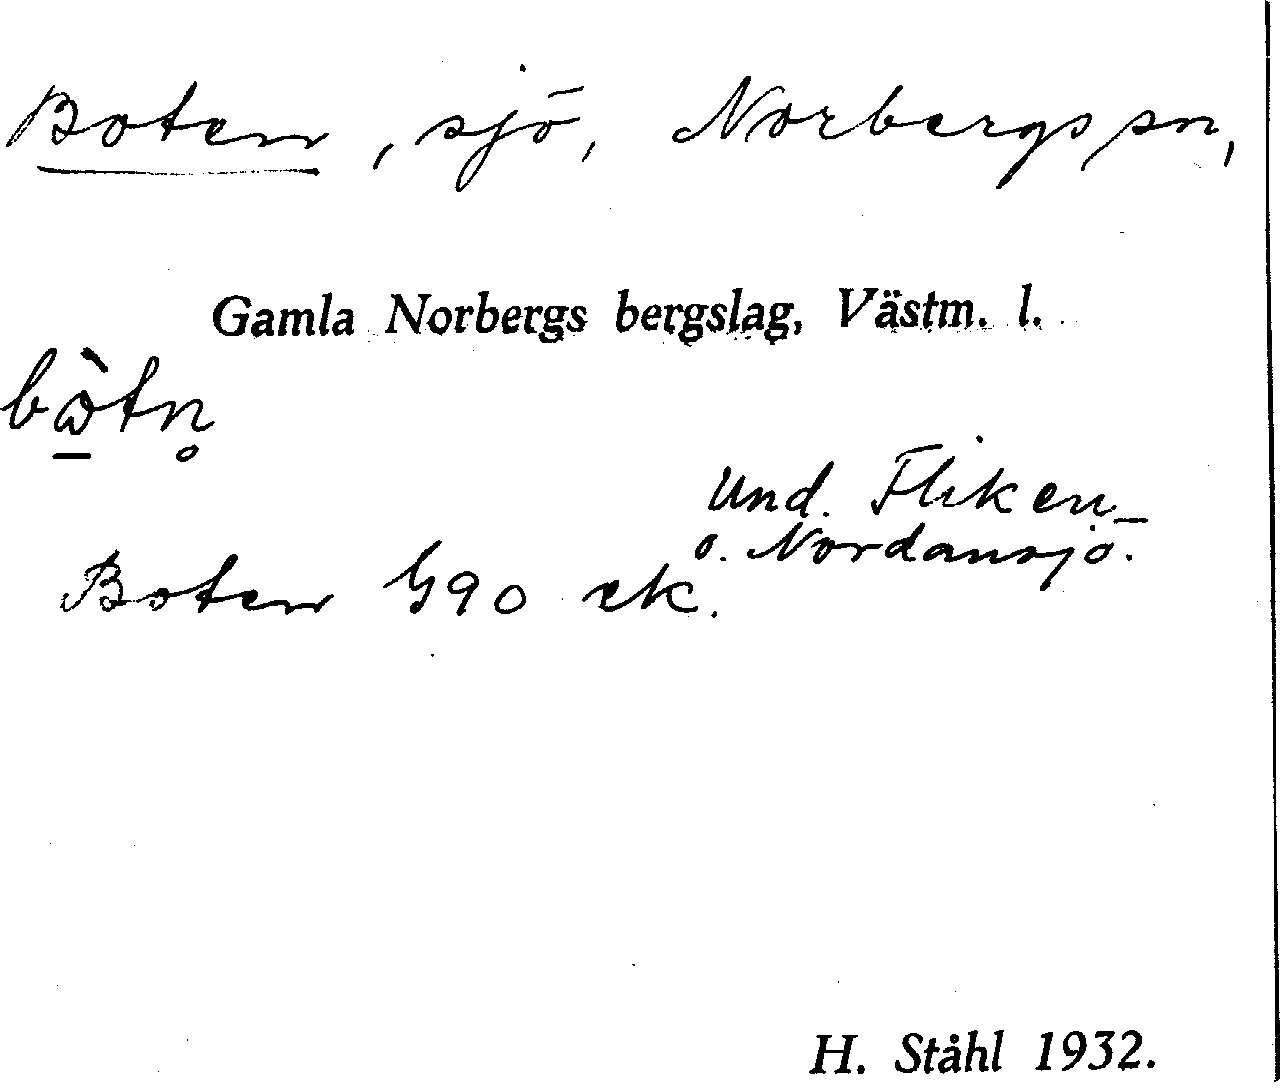 Boten, sjö, Norbergs sn,
Gamla Norbergs bergslag, Västm. l.
bὼtn̥
Und. Fliken
o. Nordansjö.
Boten G90 ek.
H. Ståhl 1932.